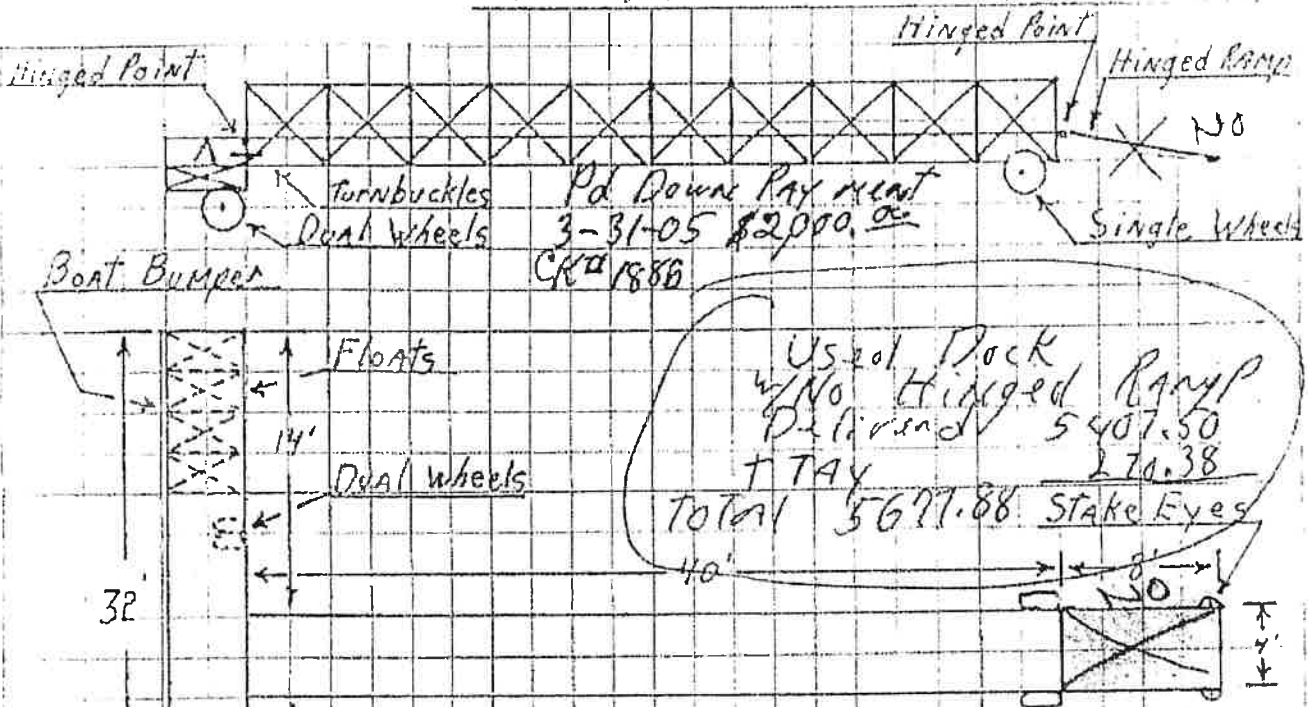 Hinged Point
Hinged Point
Hinged Ramp
NO
Turnbuckles
Dual Wheels
Pd Down Payment
3-31-05 $2,000.00
CK# 1886
Single Wheels
Boat Bumper
Floats
14'
Dual Wheels
32'
Used Dock
w/No Hinged Ramp
Delivered 5407.50
+ TAX 270.38
Total 5677.88
Stake Eyes
40'
8'
NO
4'